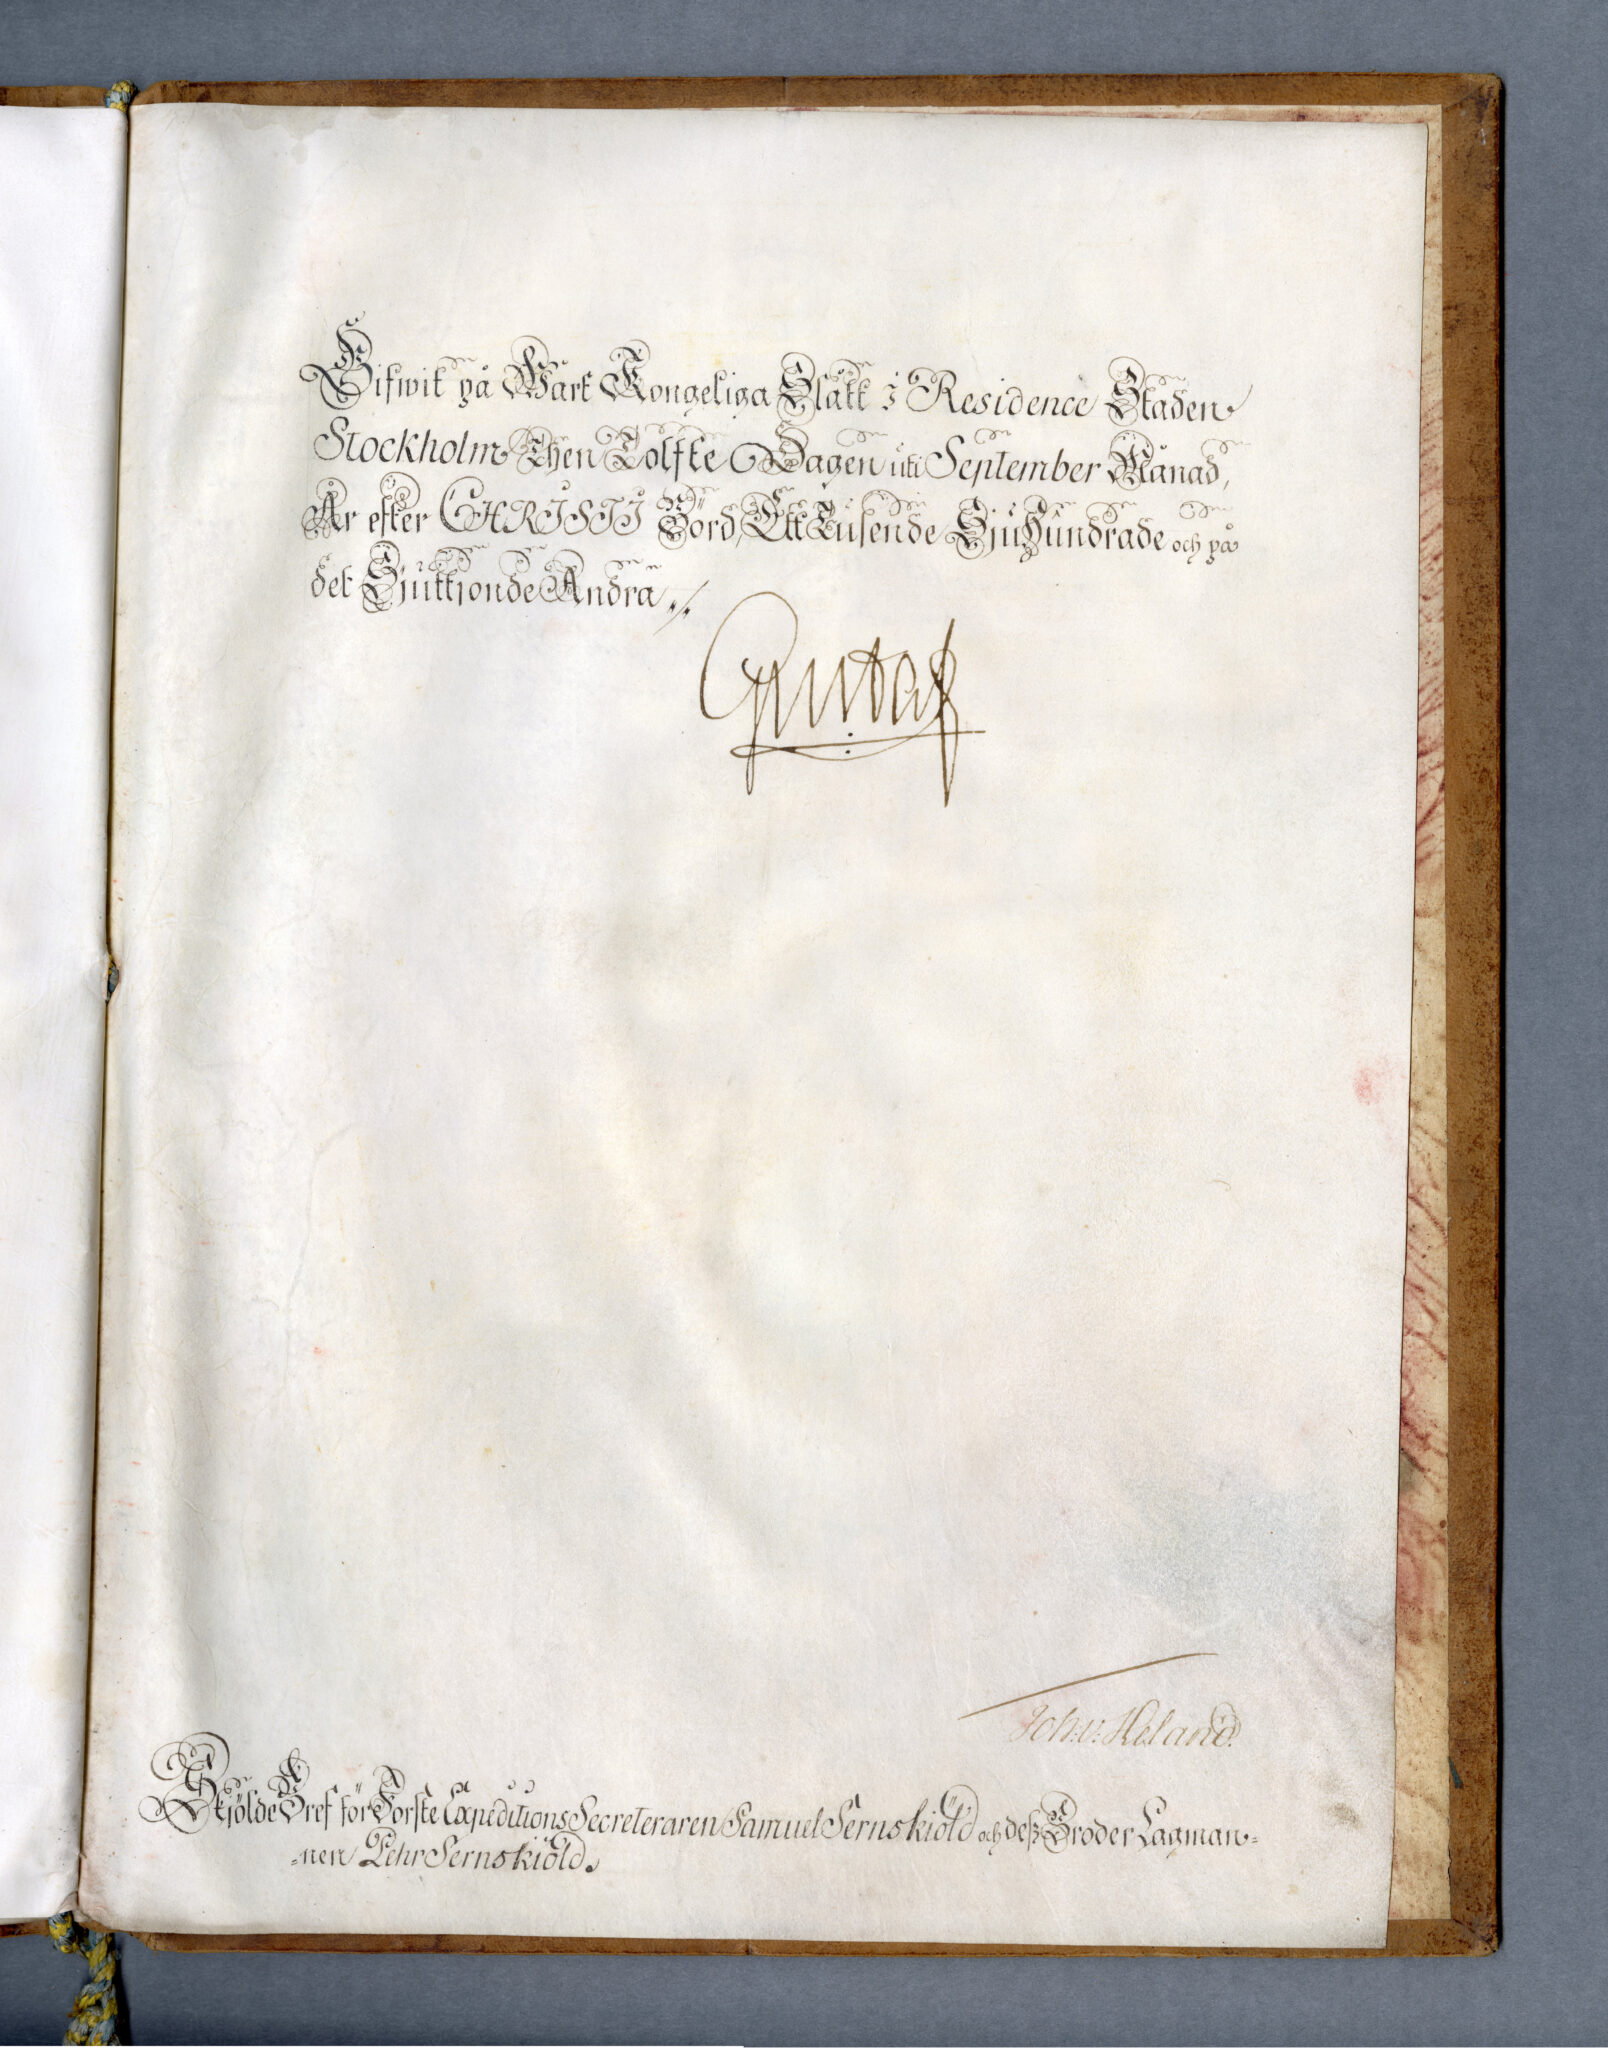 Gifwit på Wårt Kongeliga Slått i Residence Staden
Stockholm Then Tolfte Dagen uti September Månad,
År efter CHRISTI Börd, Ett Tusende Sju Hundrade och på
det Sjuttjonde Andra ./.
Gustaf
Joh: v: Heland.
Skjölde Bref för Förste Expeditions Secreteraren Samuel Sernskiöld och dess Broder Lagman=
=nen Pehr Sernskiöld.